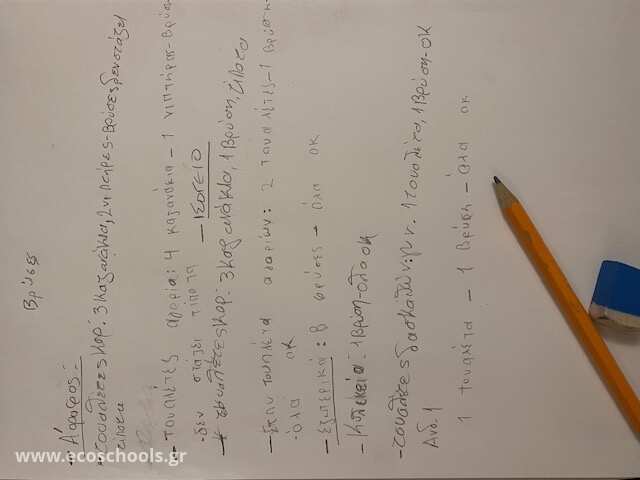 Βρύσες
- Α΄όροφος:-
- τουαλέτες κορ.: 3 καζανάκια, 2 νιπτήρες-βρύσες δεν στάζει
τίποτα
- τουαλέτες αγορια: 4 καζανάκια - 1 νιπτήρας-βρύση
-δεν στάζει τιποτα
- ΙΣΟΓΕΙΟ
- τουαλέτες κορ.: 3 καζανάκια, 1 βρύση, τίποτα
- Στην τουαλέτα αγοριών: 2 τουαλέτες-1 βρύση-
-όλα οκ
- εξωτερικά: 8 βρύσες - όλα οκ
- Κυλικείο: 1 βρύση-όλα οκ
- τουαλέτες δασκάλων: γυν. 1 τουαλέτα, 1 βρύση-οκ
Ανδ. 1
1 τουαλέτα - 1 βρύση - όλα οκ
www.ecoschools.gr